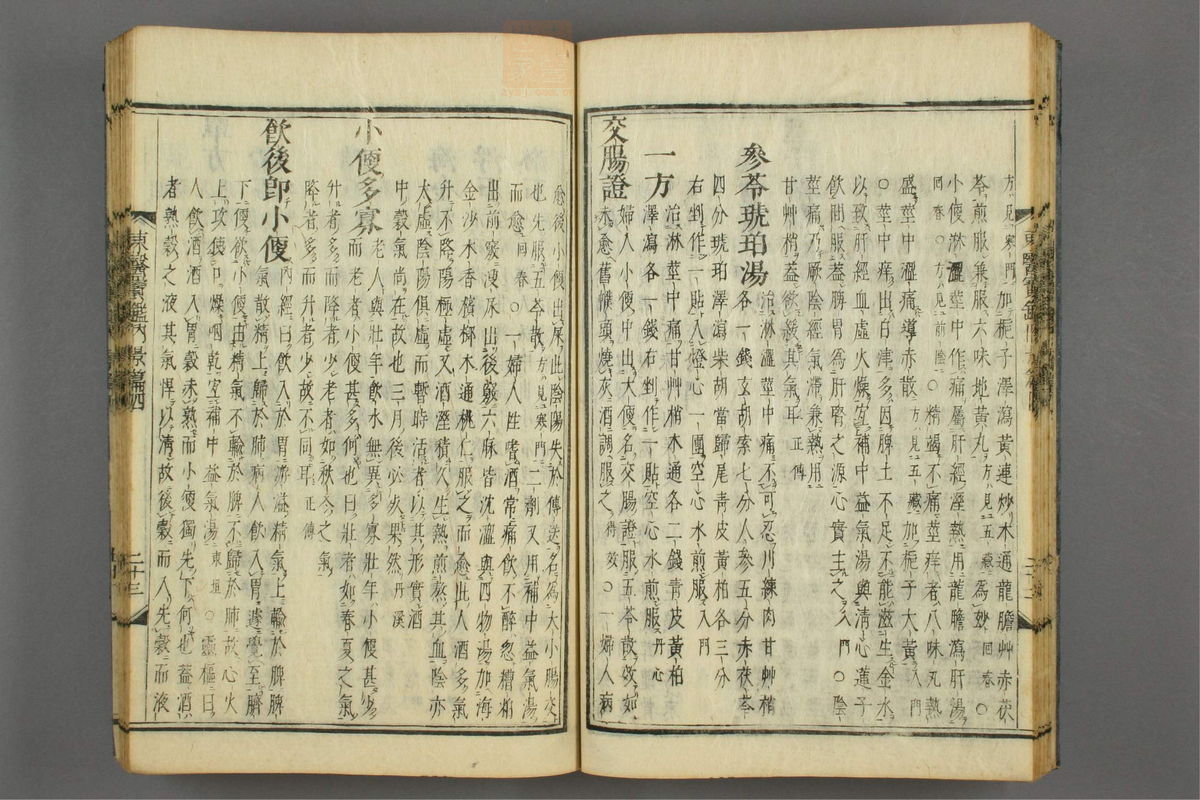 方見寒門加梔子澤瀉黃連炒木通龍膽艸赤茯
苓煎服兼服六味地黃丸方見五藏爲妙回春○
小便淋澀莖中作痛屬肝經溼熱用龍膽瀉肝湯
回春○方見前陰○精竭不痛莖痒者八味丸熱
盛莖中澀痛導赤散方見五藏加梔子大黃入門
○莖中痒出白津多因脾土不足不能滋生金水
以致肝經血虛火燥宜補中益氣湯與淸心蓮子
飮間服蓋脾胃爲肝腎之源心實主之入門○陰
莖痛乃厥陰經氣滯兼熱用
甘艸梢蓋欲緩其氣耳正傳
參苓琥珀湯治淋澀莖中痛不可忍川練肉甘艸梢
各一錢玄胡索七分人參五分赤茯苓
四分琥珀澤瀉柴胡當歸尾靑皮黃柏各三分
右剉作一貼入燈心一團空心水煎服入門
一方治淋莖中痛甘艸梢木通各二錢靑皮黃柏
澤瀉各一錢右剉作一貼空心水煎服丹心
交腸證婦人小便中出大便名交腸證服五苓散效如
未愈舊幞頭燒灰酒調服之得效○一婦人病
愈後小便出屎此陰陽失於傳送名爲大小腸交
也先服五苓散方見寒門二劑又用補中益氣湯
而愈回春○一婦人性嗜酒常痛飮不醉忽糟粕
出前竅溲尿出後竅六脉皆沈澀與四物湯加海
金沙木香檳榔木通桃仁服之而愈此人酒多氣
升不降陽極虛又酒溼積久生熱煎熬其血陰亦
大虛陰陽俱虛而暫時活者以其形實酒
中穀氣尚在故也三月後必歿果然丹溪
小便多寡老人與壯年飮水無異多寡壯年小便甚少
而老者小便甚多何也曰壯者如春夏之氣
升者多而降者少老者如秋冬之氣
降者多而升者少故不同耳正傳
飮後卽小便內經曰飮入於胃游溢精氣上輸於脾脾
氣散精上歸於肺病人飮入胃遽覺至臍
下便欲小便由精氣不輸於脾不歸於肺故心火
上攻使口燥咽乾宜補中益氣湯東垣○靈樞曰
人飮酒酒入胃穀未熟而小便獨先下何也蓋酒
者熟穀之液其氣悍以淸故後穀而入先穀而液
東醫寶鑑內景篇四
二十三